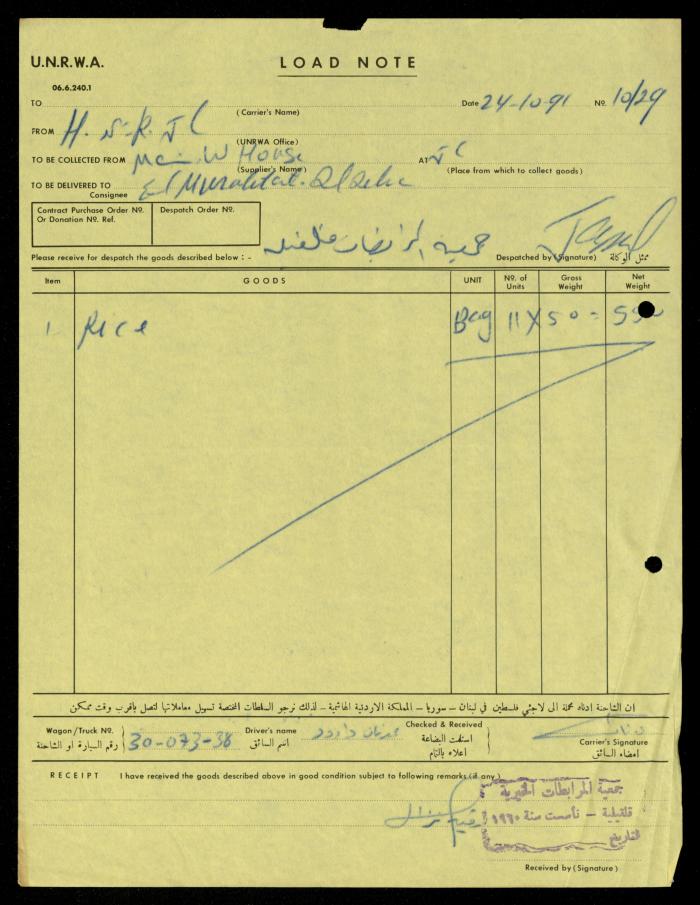 U.N.R.W.A.
LOAD NOTE
06.6.240.1
TO
(Carrier's Name)
Date 24-10-91 No. 10/29
FROM
(UNRWA Office)
TO BE COLLECTED FROM Main W House
(Supplier's Name)
AT
(Place from which to collect goods)
TO BE DELIVERED TO
Consignee
Contract Purchase Order No.
Or Donation No. Ref.
Despatch Order No.
جمعية المرابطات قلقيلية
Please receive for despatch the goods described below : -
Despatched by (Signature) ممثل الوكالة
Item GOODS UNIT No. of Units Gross Weight Net Weight
1 Rice Bag 11 X 50 = 550
ان الشاحنة ادناه محملة الى لاجئي فلسطين في لبنان – سوريا – المملكة الاردنية الهاشمية – لذلك نرجو السلطات المختصة تسهيل معاملاتها لتصل باقرب وقت ممكن
Wagon/Truck No.
رقم السيارة او الشاحنة
30-073-38
Driver's name
اسم السائق
عدنان داود
Checked & Received
استلمت البضاعة
اعلاه بالتمام
عدنان
Carrier's Signature
امضاء السائق
RECEIPT I have received the goods described above in good condition subject to following remarks (if any)
جمعية المرابطات الخيرية
قلقيلية – تأسست سنة ١٩٦٠
التاريخ
Received by (Signature)